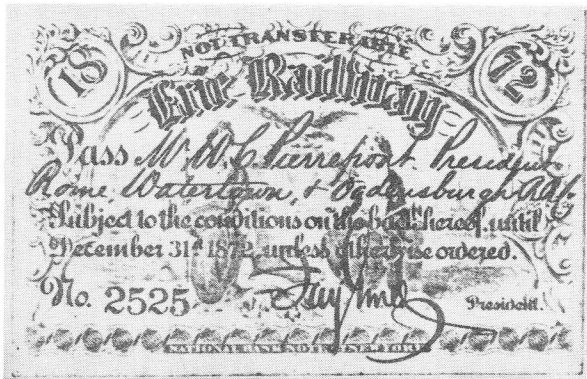 NOT TRANSFERABLE
18 72
Erie Railway
Pass Mr W. C. Pierrepont President
Rome, Watertown, & Ogdensburgh
Subject to the conditions on the back hereof, until
December 31st 1872, unless otherwise ordered.
No. 2525 Jay Gould President.
NATIONAL BANK NOTE CO. NEW YORK